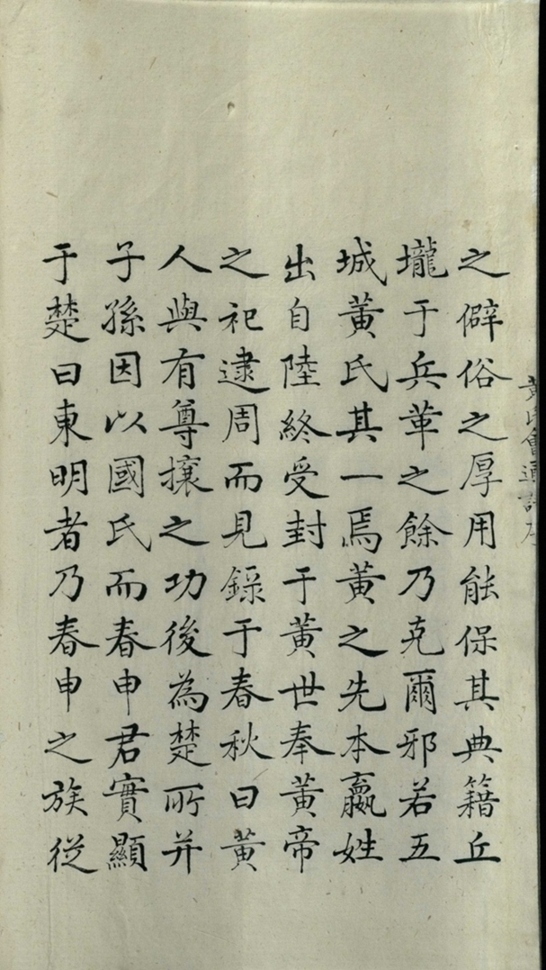 之僻俗之厚用能保其典籍丘
壠于兵革之餘乃克爾邪若五
城黃氏其一焉黃之先本嬴姓
出自陸終受封于黃世奉黃帝
之祀逮周而見錄于春秋曰黃
人與有尊攘之功後為楚所并
子孫因以國氏而春申君實顯
于楚曰東明者乃春申之族從